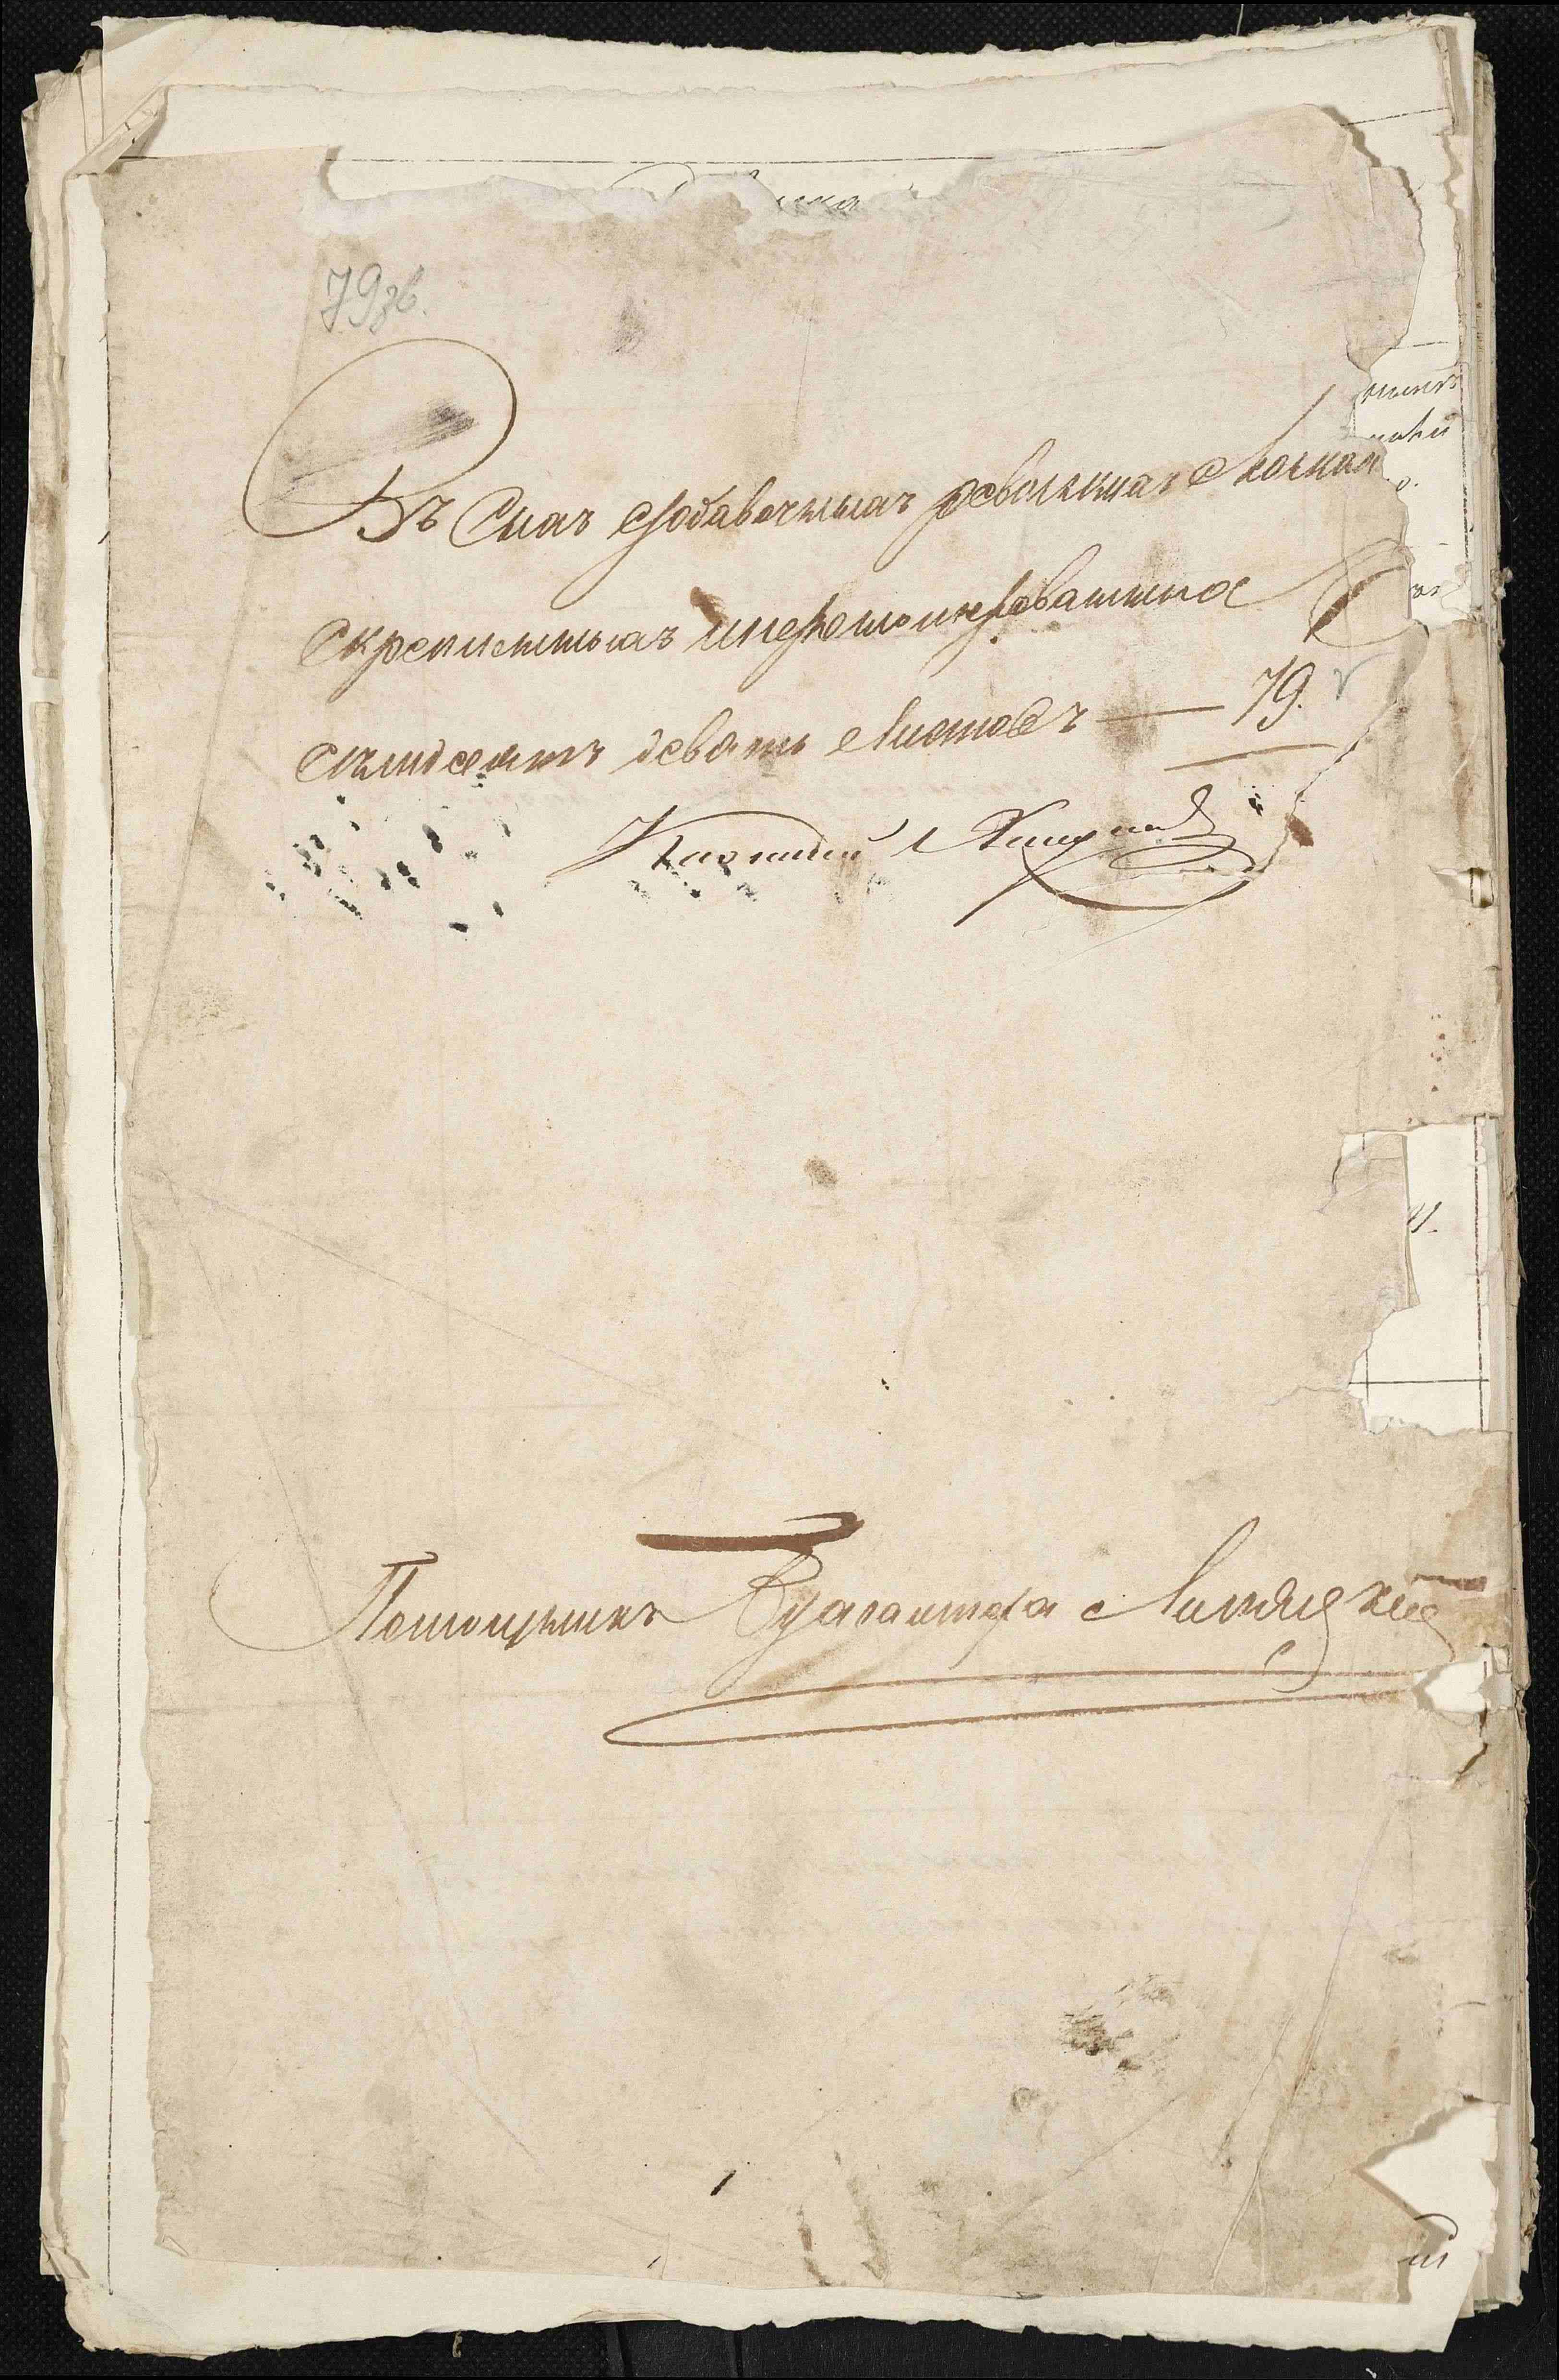 79 зв.
Въ Сихъ добавочныхъ ревизкихъ Сказках
Скрепленныхъ ипрошнурованныхъ
Семьдесятъ девять Листовъ — 79.
Помощникъ Бухгалтера